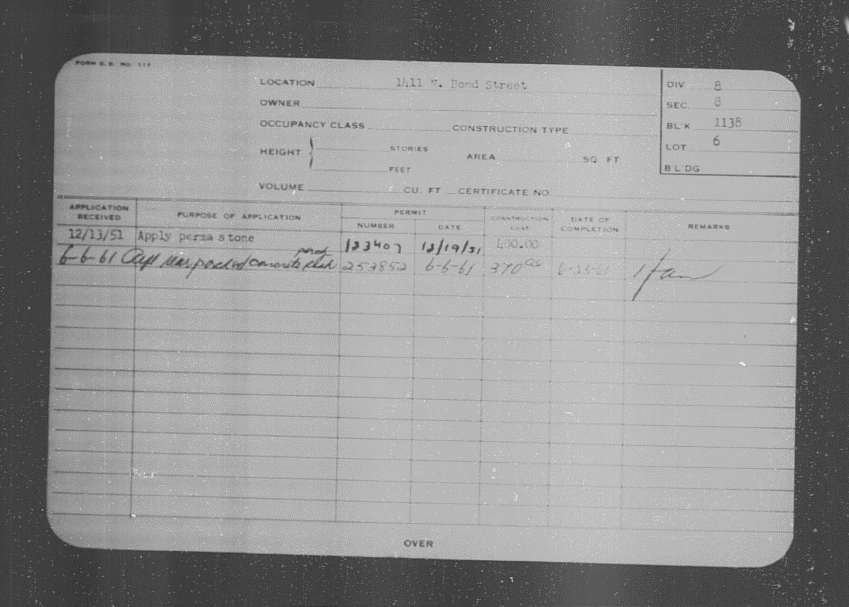 FORM B. B. No. 117
LOCATION 1411 W. Dond Street
OWNER
OCCUPANCY CLASS CONSTRUCTION TYPE
HEIGHT { STORIES AREA SQ FT
FEET
VOLUME CU. FT CERTIFICATE NO
DIV 8
SEC. 8
BL'K 1138
LOT 6
BL'DG
APPLICATION RECEIVED PURPOSE OF APPLICATION PERMIT NUMBER DATE CONSTRUCTION COST DATE OF COMPLETION REMARKS
12/13/51 Apply perma stone 123407 12/19/51 400.00
6-6-61 rear porch w/ concrete 257852 6-6-61 370 6-23-61
OVER